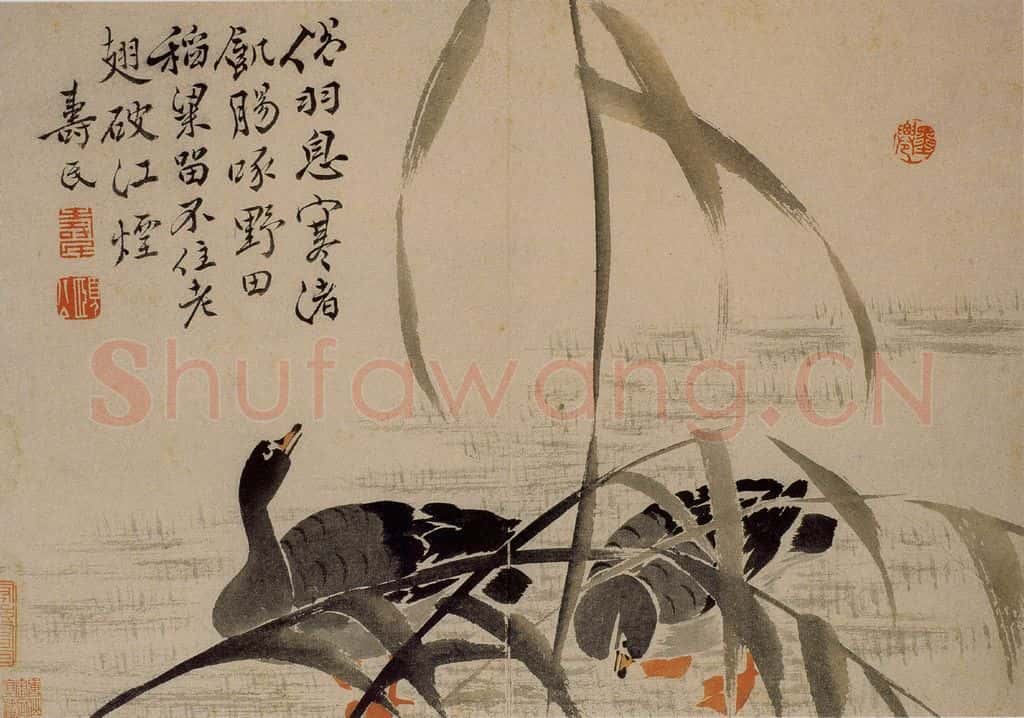 倦羽息寒渚
飢腸啄野田
稻粱留不住老
翅破江煙
壽民
壽民
Shufawang.CN